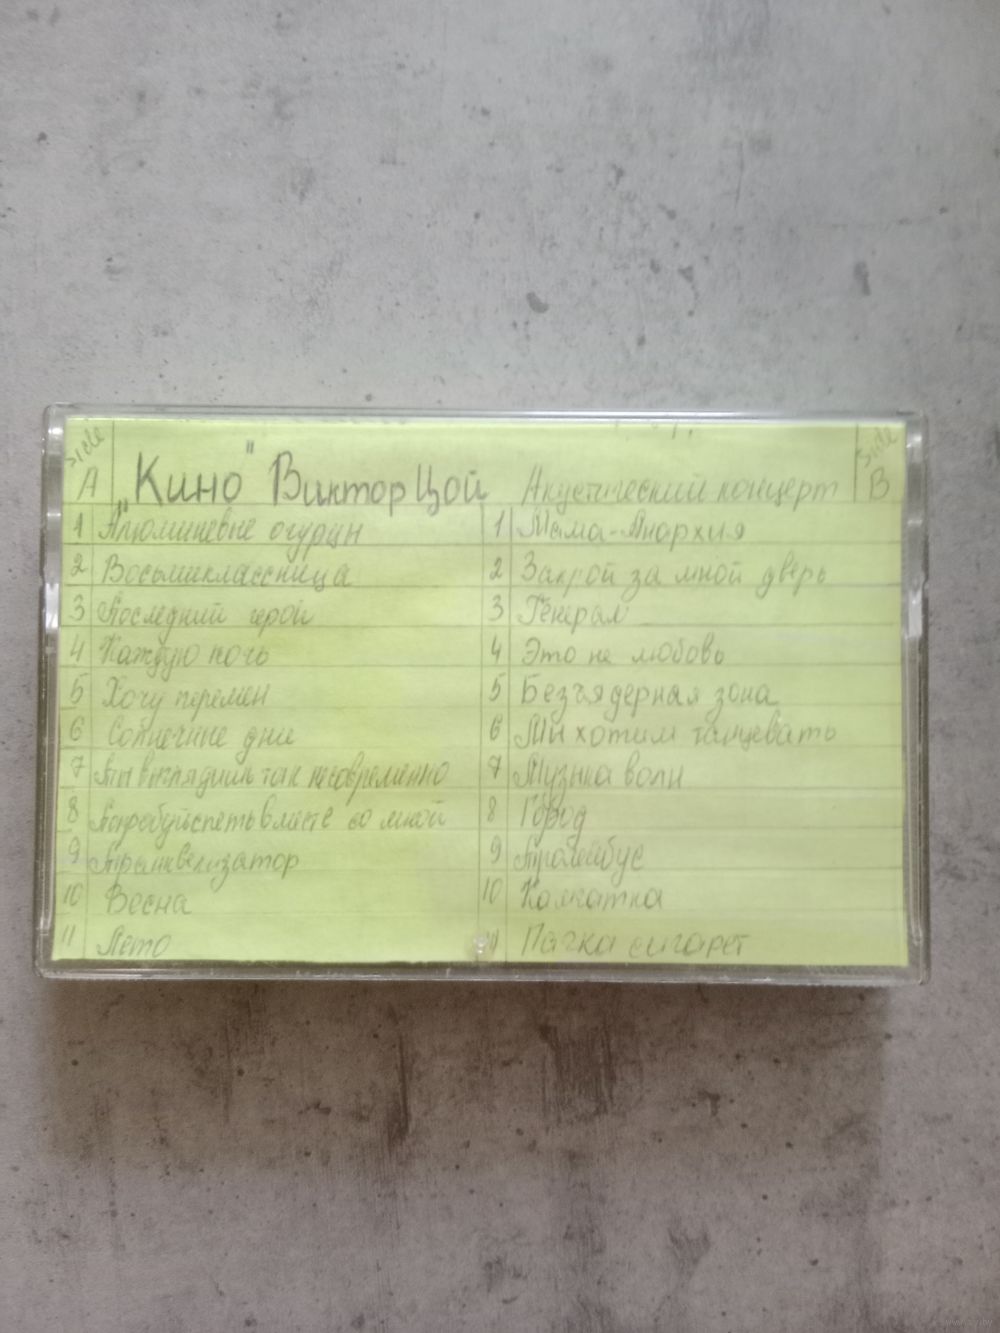 Side A
„Кино" Виктор Цой Акустический концерт
Side B
1 Алюминевые огурцы
2 Восьмиклассница
3 Последний герой
4 Каждую ночь
5 Хочу перемен
6 Солнечные дни
7 Ты выглядишь так несовременно
8 Попробуй спеть вместе со мной
9 Транквелизатор
10 Весна
11 Лето
1 Мама-Анархия
2 Закрой за мной дверь
3 Генерал
4 Это не любовь
5 Безъядерная зона
6 Мы хотим танцевать
7 Музыка волн
8 Город
9 Тролейбус
10 Камчатка
11 Пачка сигарет